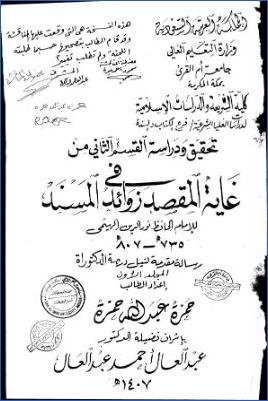 المملكة العربية السعودية
وزارة التعليم العالي
جامعة أم القرى
مكة المكرمة
كلية الشريعة والدراسات الإسلامية
هذه النسخة هي التي وقعت عليها المناقشة
وقد قام الطالب بتصحيح
المشرف
تحقيق ودراسة القسم الثاني من
غاية المقصد في زوائد المسند
للإمام الحافظ نور الدين الهيثمي
٧٣٥ - ٨٠٧ هـ
رسالة مقدمة لنيل درجة الدكتوراة
المجلد الأول
إعداد الطالب
حمزة عبد الله حمزة
بإشراف فضيلة الدكتور
عبد العال أحمد عبد العال
١٤٠٧ هـ